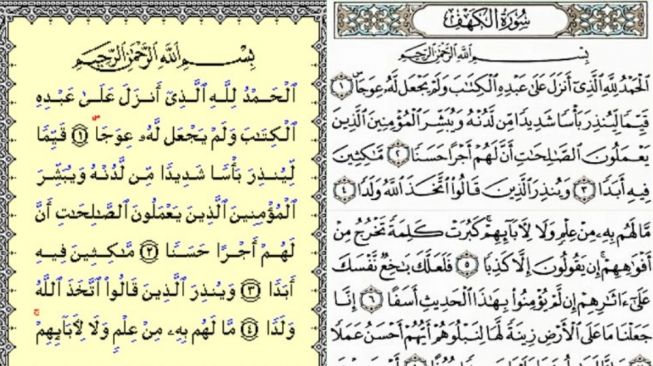 بِسْمِ ٱللَّهِ ٱلرَّحْمَٰنِ ٱلرَّحِيمِ
ٱلْحَمْدُ لِلَّهِ ٱلَّذِىٓ أَنزَلَ عَلَىٰ عَبْدِهِ
ٱلْكِتَٰبَ وَلَمْ يَجْعَل لَّهُۥ عِوَجَاۜ ﴿١﴾ قَيِّمًا
لِّيُنذِرَ بَأْسًا شَدِيدًا مِّن لَّدُنْهُ وَيُبَشِّرَ
ٱلْمُؤْمِنِينَ ٱلَّذِينَ يَعْمَلُونَ ٱلصَّٰلِحَٰتِ أَنَّ
لَهُمْ أَجْرًا حَسَنًا ﴿٢﴾ مَّٰكِثِينَ فِيهِ
أَبَدًا ﴿٣﴾ وَيُنذِرَ ٱلَّذِينَ قَالُوا۟ ٱتَّخَذَ ٱللَّهُ
وَلَدًا ﴿٤﴾ مَّا لَهُم بِهِۦ مِنْ عِلْمٍ وَلَا لِءَابَآئِهِمْ ۚ
سُورَةُ الكَهْفِ
بِسْمِ ٱللَّهِ ٱلرَّحْمَٰنِ ٱلرَّحِيمِ
ٱلْحَمْدُ لِلَّهِ ٱلَّذِىٓ أَنزَلَ عَلَىٰ عَبْدِهِ ٱلْكِتَٰبَ وَلَمْ يَجْعَل لَّهُۥ عِوَجَاۜ ﴿١﴾
قَيِّمًا لِّيُنذِرَ بَأْسًا شَدِيدًا مِّن لَّدُنْهُ وَيُبَشِّرَ ٱلْمُؤْمِنِينَ ٱلَّذِينَ
يَعْمَلُونَ ٱلصَّٰلِحَٰتِ أَنَّ لَهُمْ أَجْرًا حَسَنًا ﴿٢﴾ مَّٰكِثِينَ
فِيهِ أَبَدًا ﴿٣﴾ وَيُنذِرَ ٱلَّذِينَ قَالُوا۟ ٱتَّخَذَ ٱللَّهُ وَلَدًا ﴿٤﴾
مَّا لَهُم بِهِۦ مِنْ عِلْمٍ وَلَا لِءَابَآئِهِمْ ۚ كَبُرَتْ كَلِمَةً تَخْرُجُ مِنْ
أَفْوَٰهِهِمْ ۚ إِن يَقُولُونَ إِلَّا كَذِبًا ﴿٥﴾ فَلَعَلَّكَ بَٰخِعٌ نَّفْسَكَ
عَلَىٰٓ ءَاثَٰرِهِمْ إِن لَّمْ يُؤْمِنُوا۟ بِهَٰذَا ٱلْحَدِيثِ أَسَفًا ﴿٦﴾ إِنَّا
جَعَلْنَا مَا عَلَى ٱلْأَرْضِ زِينَةً لَّهَا لِنَبْلُوَهُمْ أَيُّهُمْ أَحْسَنُ عَمَلًا